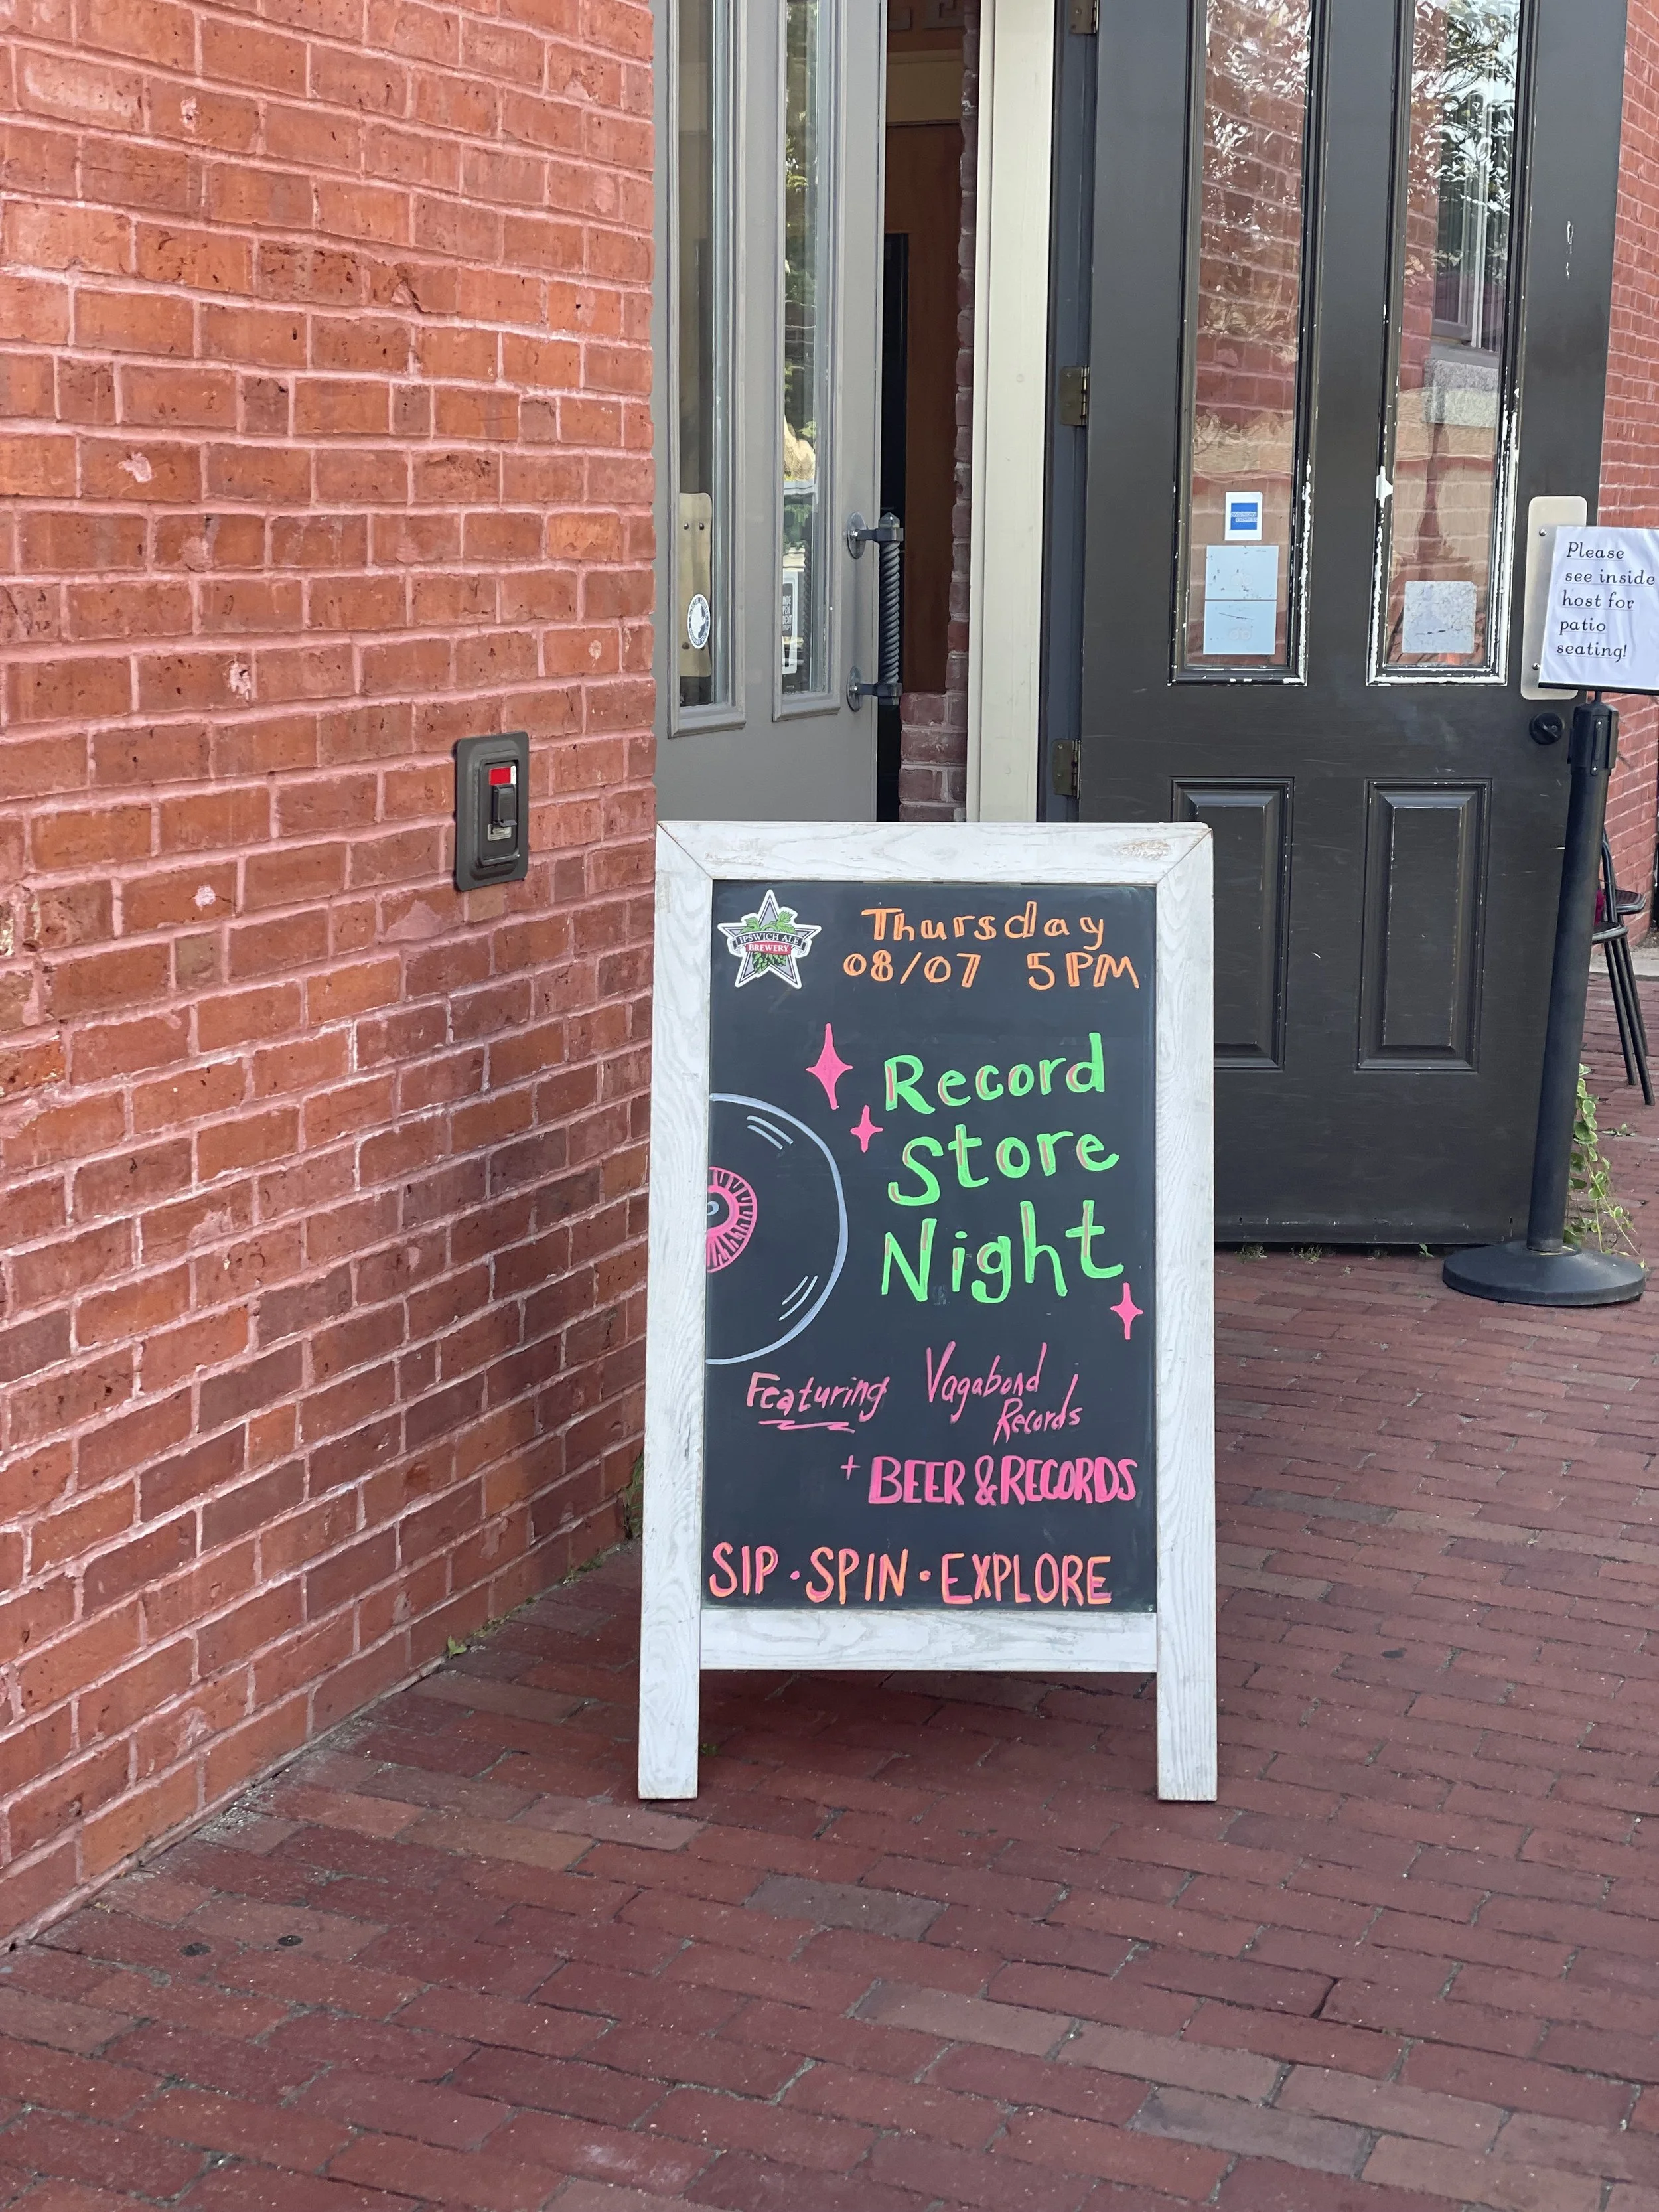 Please
see inside
host for
patio
seating!
IPSWICH ALE
BREWERY
Thursday
08/07 5PM
Record
Store
Night
Featuring Vagabond
Records
+ BEER & RECORDS
SIP · SPIN · EXPLORE